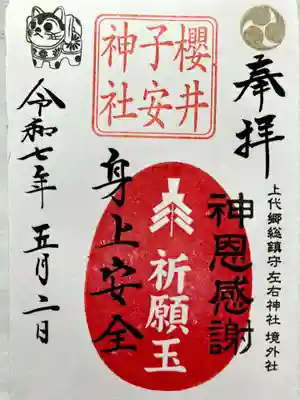 奉拝
上代郷総鎮守左右神社 境外社
神恩感謝
櫻井
子安
神社
祈願玉
身上安全
令和七年 五月二日